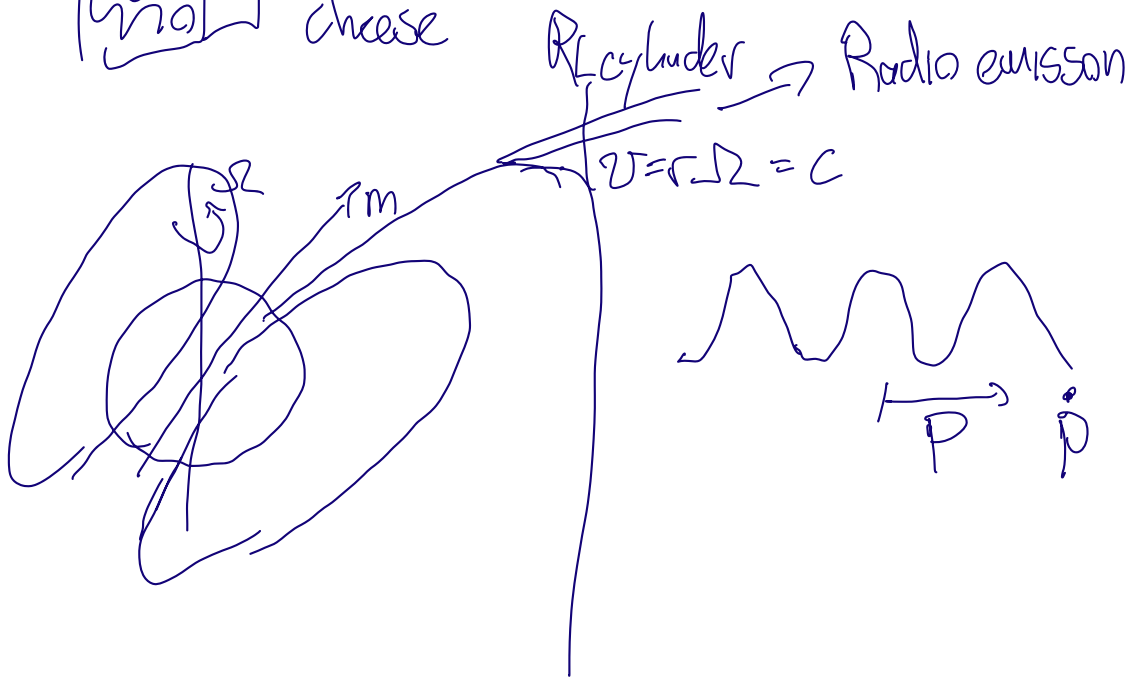 cheese
RL cylinder → Radio emisson
Ω
m
v=rΩ = c
P
Ṗ